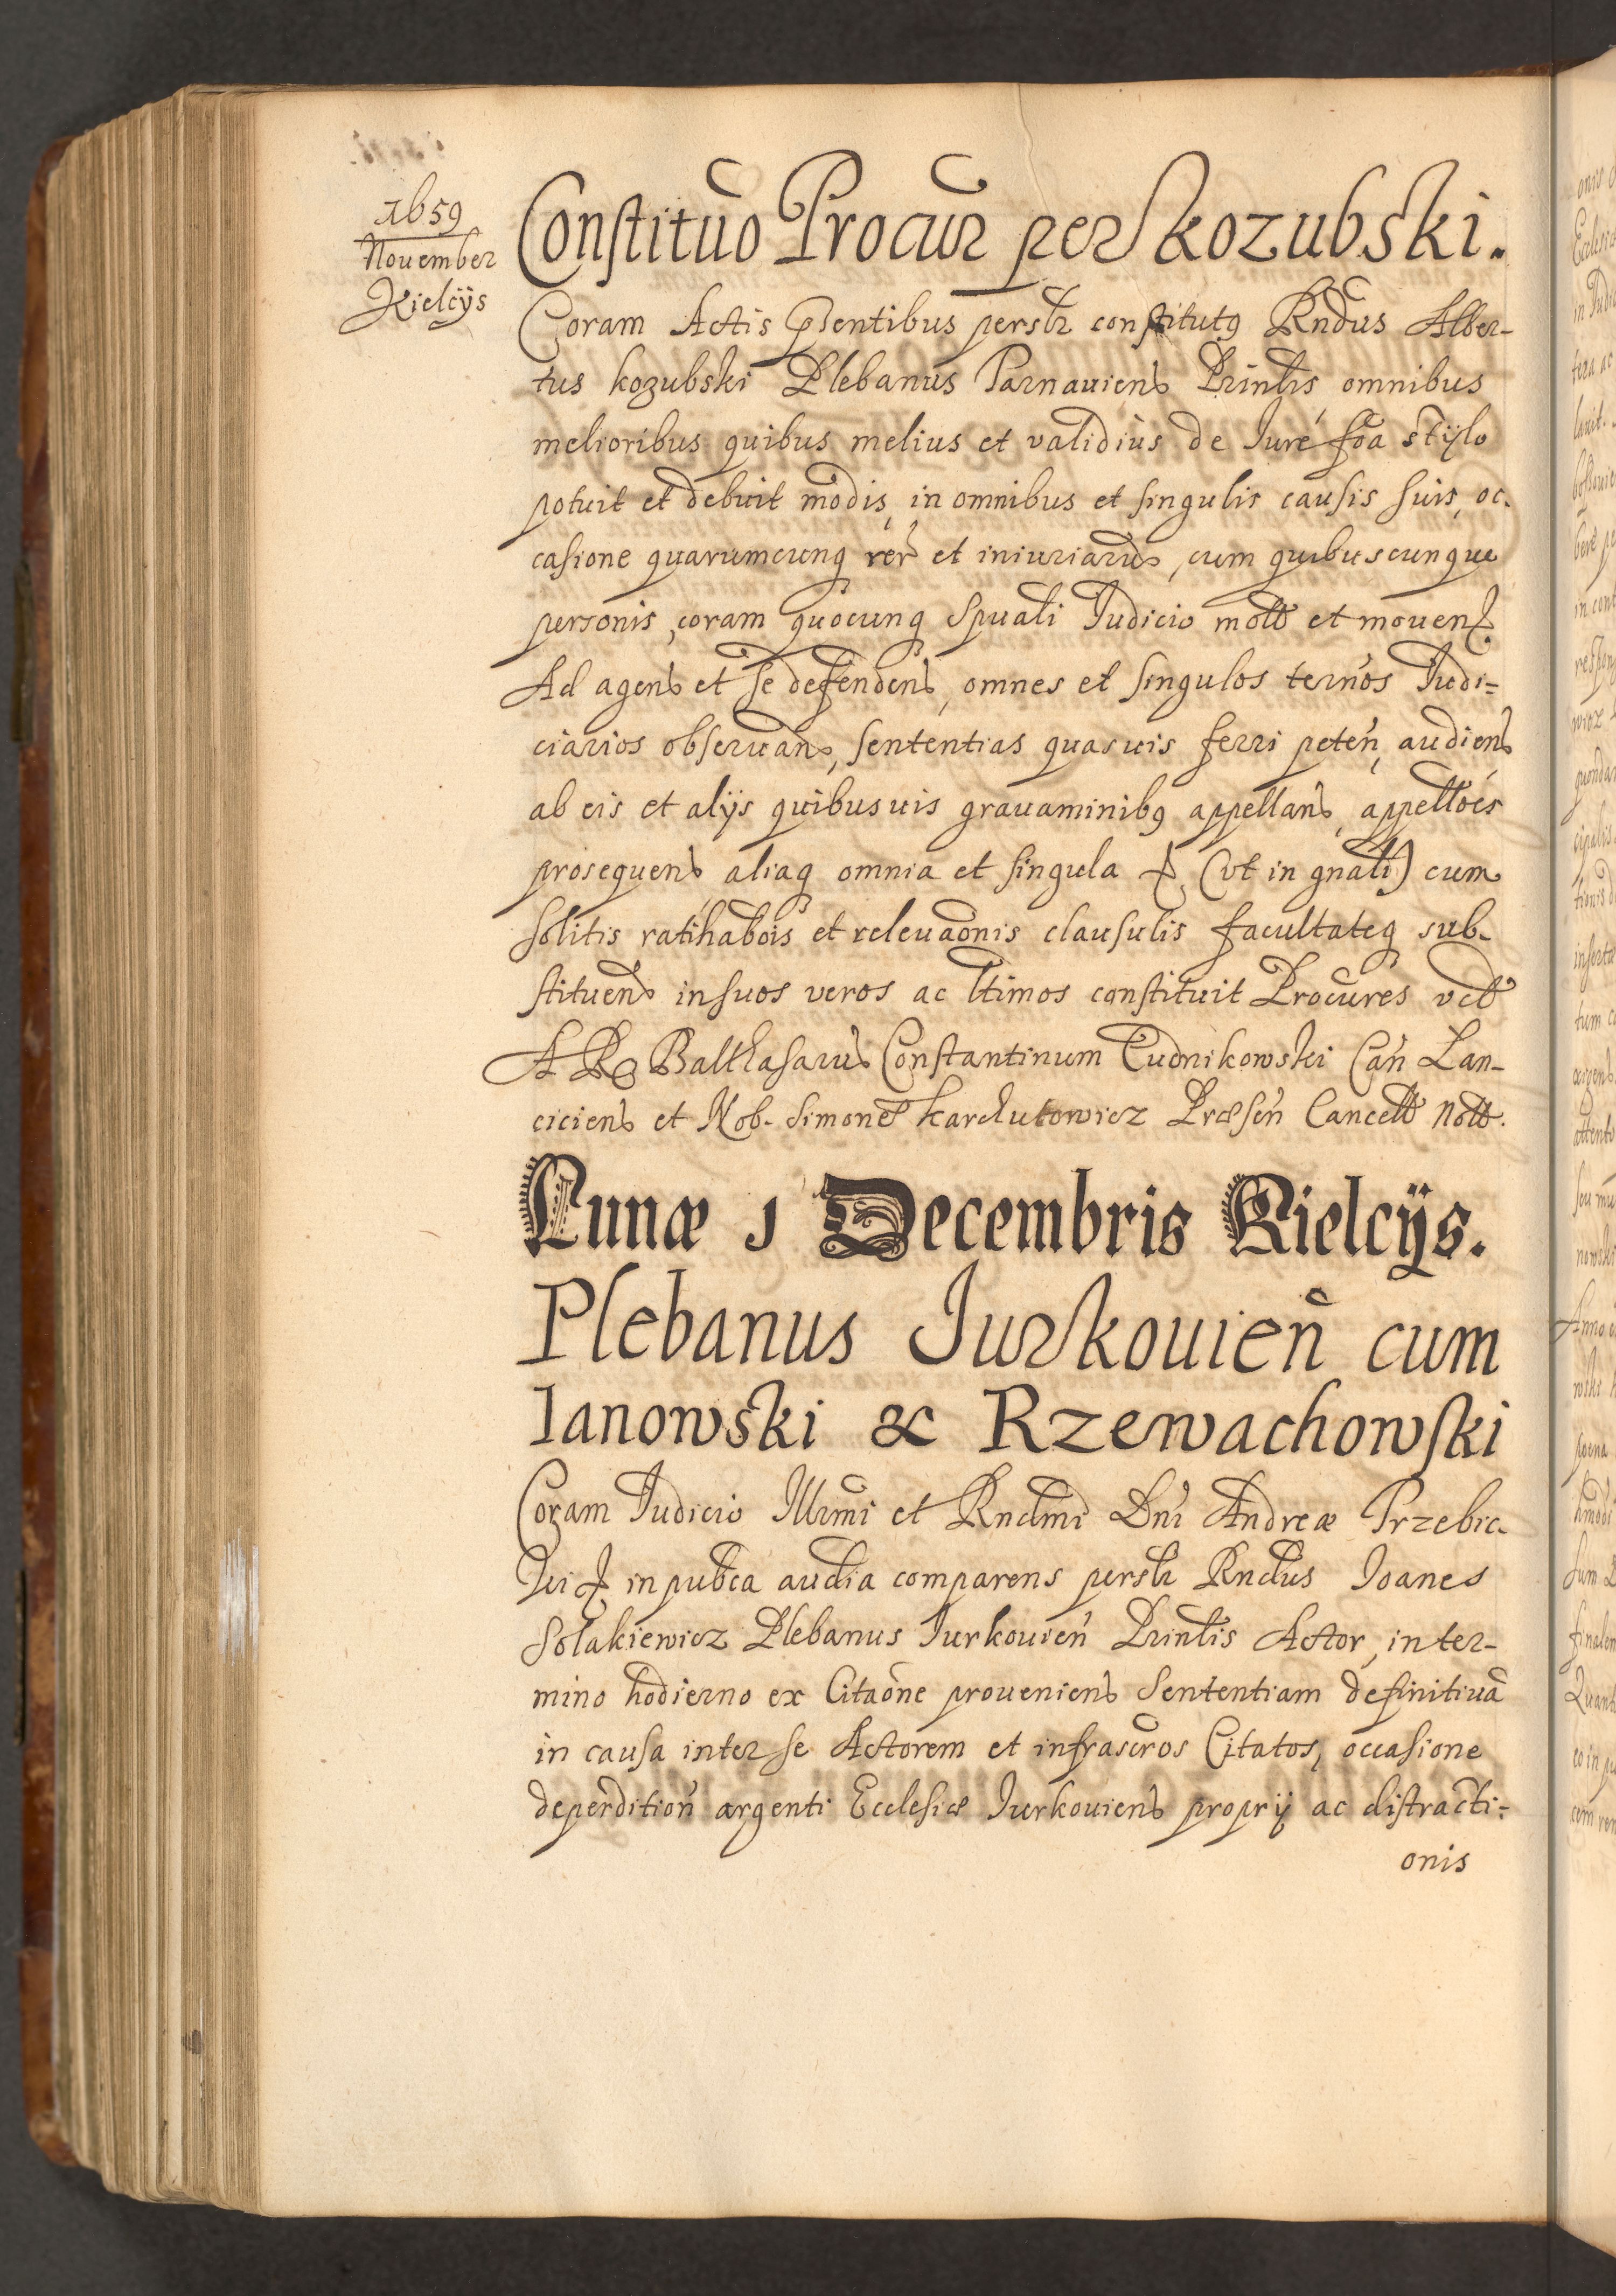 1659
Nouember
Kielcijs
Constituo Procur per Kozubski.
Coram Actis pntibus persłr constitutq Rndus Alber-
tus Kozubski Plebanus Tarnauiens Prinłis omnibus
melioribus quibus melius et validius de Iure foa stylo
potuit et debuit modis, in omnibus et singulis causis suis, oc-
casione quarumcunq rer et iniuriaru, cum quibuscunque
personis, coram quocunq Spuali Iudicio mott et mouen
Ad agens et se defendens, omnes et singulos ternos Iudi=
ciarios obseruans, sententias quasuis ferri peten, audiens
ab eis et alijs quibusuis grauaminibq appellans, appelloes
prosequens aliaq omnia et singula & (vt in gnali) cum
solitis ratihabois et releuaonis clausulis facultateq sub-
stituens in suos veros ac ltimos constituit Procures vdt
A R Balthasarus Constantinum Cudnikowski Can Lan-
ciciens et Nob. Simone Karchutowicz Præsen Cancell Nott.
Lunæ 1 Decembris Kielcijs.
Plebanus Iurkouien cum
Ianowski & Rzewachowski
Coram Iudicio Illrmi et Rndmi Dni Andreæ Trzebic-
ki & in pubca audia comparens persłr Rndus Ioanes
Solakiewicz Plebanus Iurkouien Prinłis Actor, in ter-
mino hodierno ex Citaone proueniens Sententiam definitiua
in causa inter se Actorem et infrascros Citatos, occasione
deperdition argenti Ecclesiæ Iurkouiens proprij ac distracti=
onis